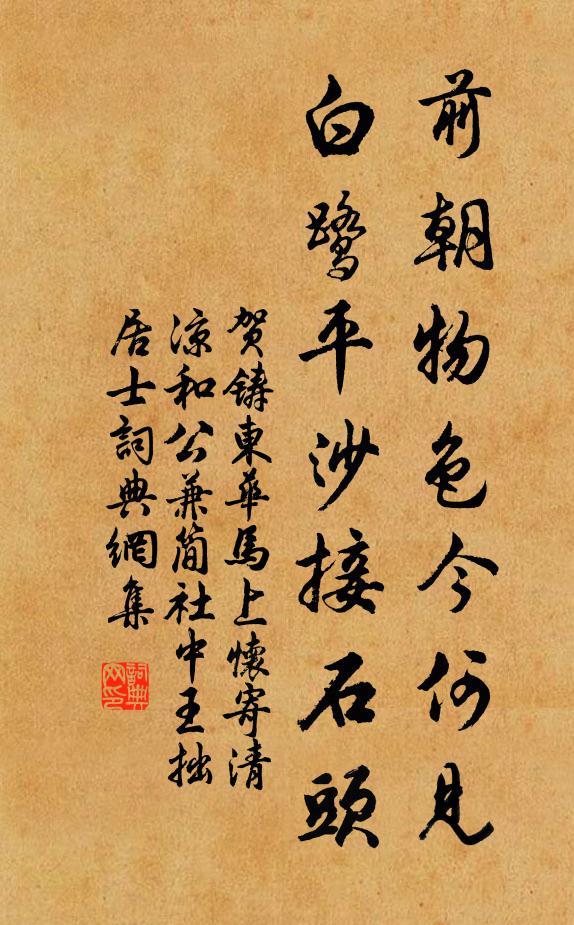 前朝物色今何見
白鹭平沙接石頭
贺鑄東華馬上懷寄清
涼和公兼简社中王拙
居士詞典網集
詞典
网印